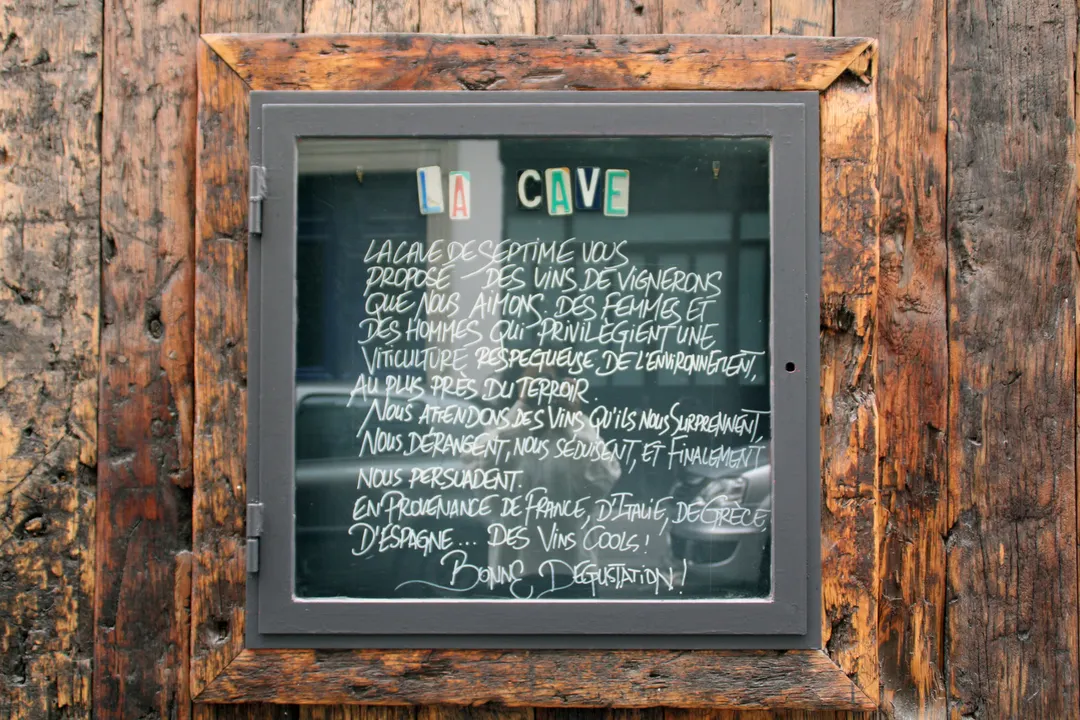 LA CAVE
LA CAVE DE SEPTIME VOUS
PROPOSE DES VINS DE VIGNERONS
QUE NOUS AIMONS. DES FEMMES ET
DES HOMMES QUI PRIVILÉGIENT UNE
VITICULTURE RESPECTUEUSE DE L'ENVIRONNEMENT,
AU PLUS PRÈS DU TERROIR.
NOUS ATTENDONS DES VINS QU'ILS NOUS SURPRENNENT,
NOUS DÉRANGENT, NOUS SÉDUISENT, ET FINALEMENT
NOUS PERSUADENT.
EN PROVENANCE DE FRANCE, D'ITALIE, DE GRÈCE,
D'ESPAGNE... DES VINS COOLS!
BONNE DÉGUSTATION!